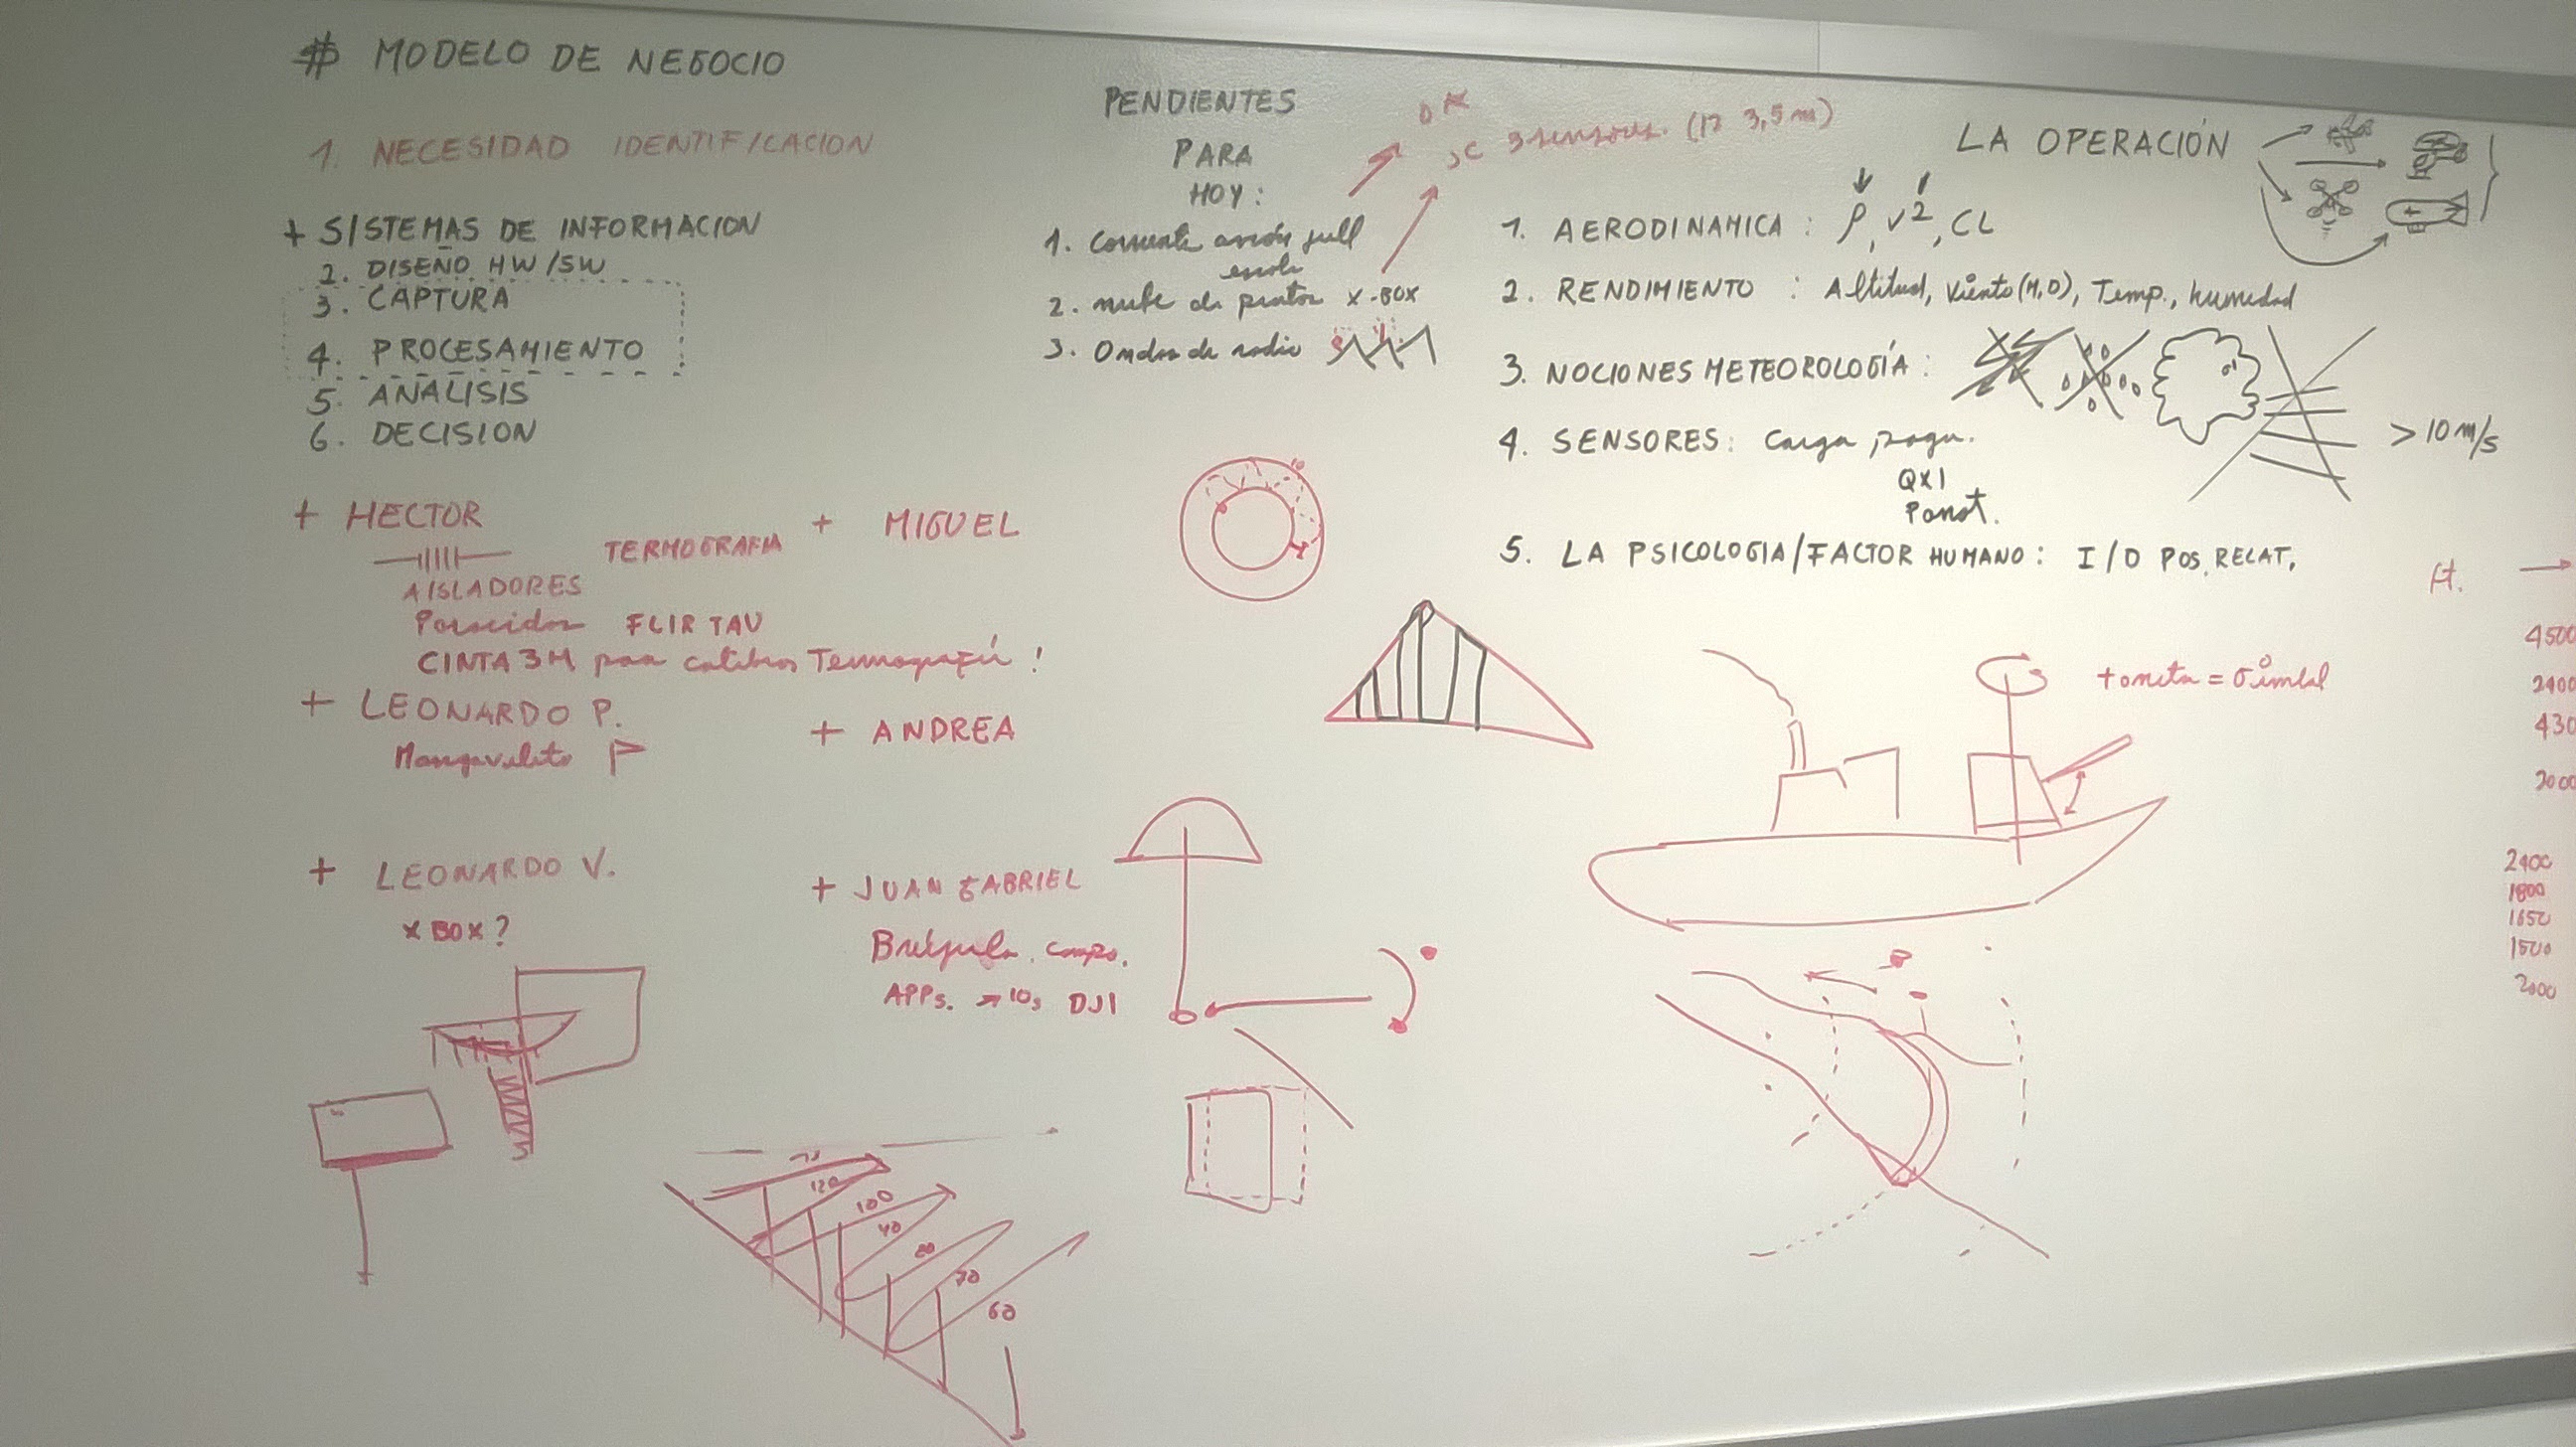 # MODELO DE NEGOCIO
1. NECESIDAD IDENTIFICACION
+ SISTEMAS DE INFORMACION
2. DISEÑO HW/SW
3. CAPTURA
4. PROCESAMIENTO
5. ANALISIS
6. DECISION
+ HECTOR
TERMOGRAFIA
AISLADORES
FLIR TAU
CINTA 3M para Termografía!
+ LEONARDO P.
+ LEONARDO V.
X BOX?
+ MIGUEL
+ ANDREA
+ JUAN GABRIEL
Brújula. comps.
APPs. → 10s DJI
70
120
100
40
80
70
60
PENDIENTES
PARA
HOY:
1. avión full
escala
2. nube de puntos X-BOX
3. Ondas de radio
OK
3 sensores. (12 3,5m)
LA OPERACIÓN
1. AERODINAMICA: ρ, v², CL
2. RENDIMIENTO: Altitud, Viento (M,D), Temp., humedad
3. NOCIONES METEOROLOGÍA:
> 10 m/s
4. SENSORES: Carga paga.
QX1
5. LA PSICOLOGIA/FACTOR HUMANO: I/D POS. RELAT.
ft. →
4500
2400
430
2000
2400
1800
1650
1500
2000